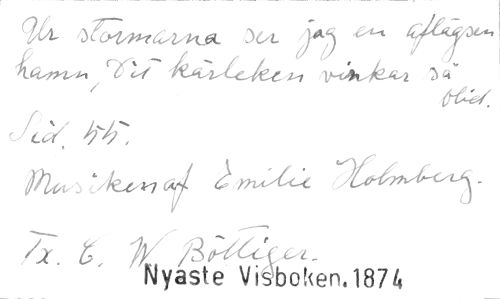 Ur stormarna ser jag en aflägsen
hamn, Dit kärleken vinkar så
blid.
Sid. 55.
Musiken af Emilie Holmberg.
Tx. C. W. Böttiger.
Nyaste Visboken. 1874